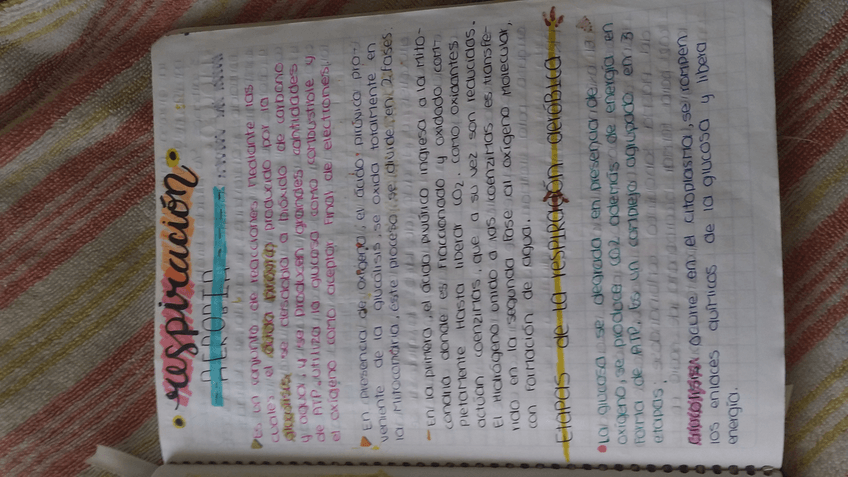 respiración
AEROBIA
Es un conjunto de reacciones mediante las
cuales el ácido pirúvico producido por la
glucólisis, se desdobla a bióxido de carbono
y agua, y se producen grandes cantidades
de ATP. utiliza la glucosa como combustible y
el oxígeno como aceptar final de electrones.
En presencia de oxígeno, el ácido pirúvico pro-
veniente de la glucólisis, se oxida totalmente en
la mitocondria, este proceso se divide en 2 fases.
- En la primera, el ácido pirúvico ingresa a la mito-
condria donde es fraccionado y oxidado com-
pletamente Hasta liberar CO2. como oxidantes
actúan coenzimas, que a su vez son reducidas.
El Hidrógeno unido a las coenzimas es transfe-
rido en la segunda fase al oxígeno molecular,
con formación de agua.
Etapas de la respiración aeróbica
La glucosa se degrada en presencia de
oxígeno, se produce CO2 además de energía en
forma de ATP, es un complejo agrupado en 3
etapas:
Glucólisis ocurre en el citoplasma, se rompen
los enlaces químicos de la glucosa y libera
energía.